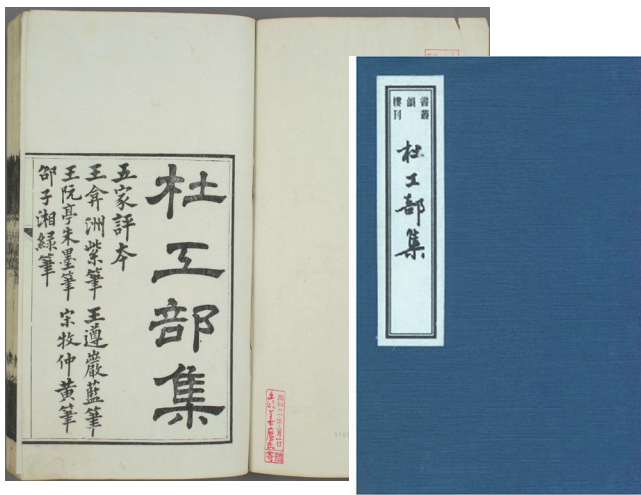 杜工部集
五家評本
王弇洲紫筆 王遵巖藍筆
王阮亭朱墨筆 宋牧仲黃筆
邵子湘綠筆
書韻樓
叢刊
杜工部集